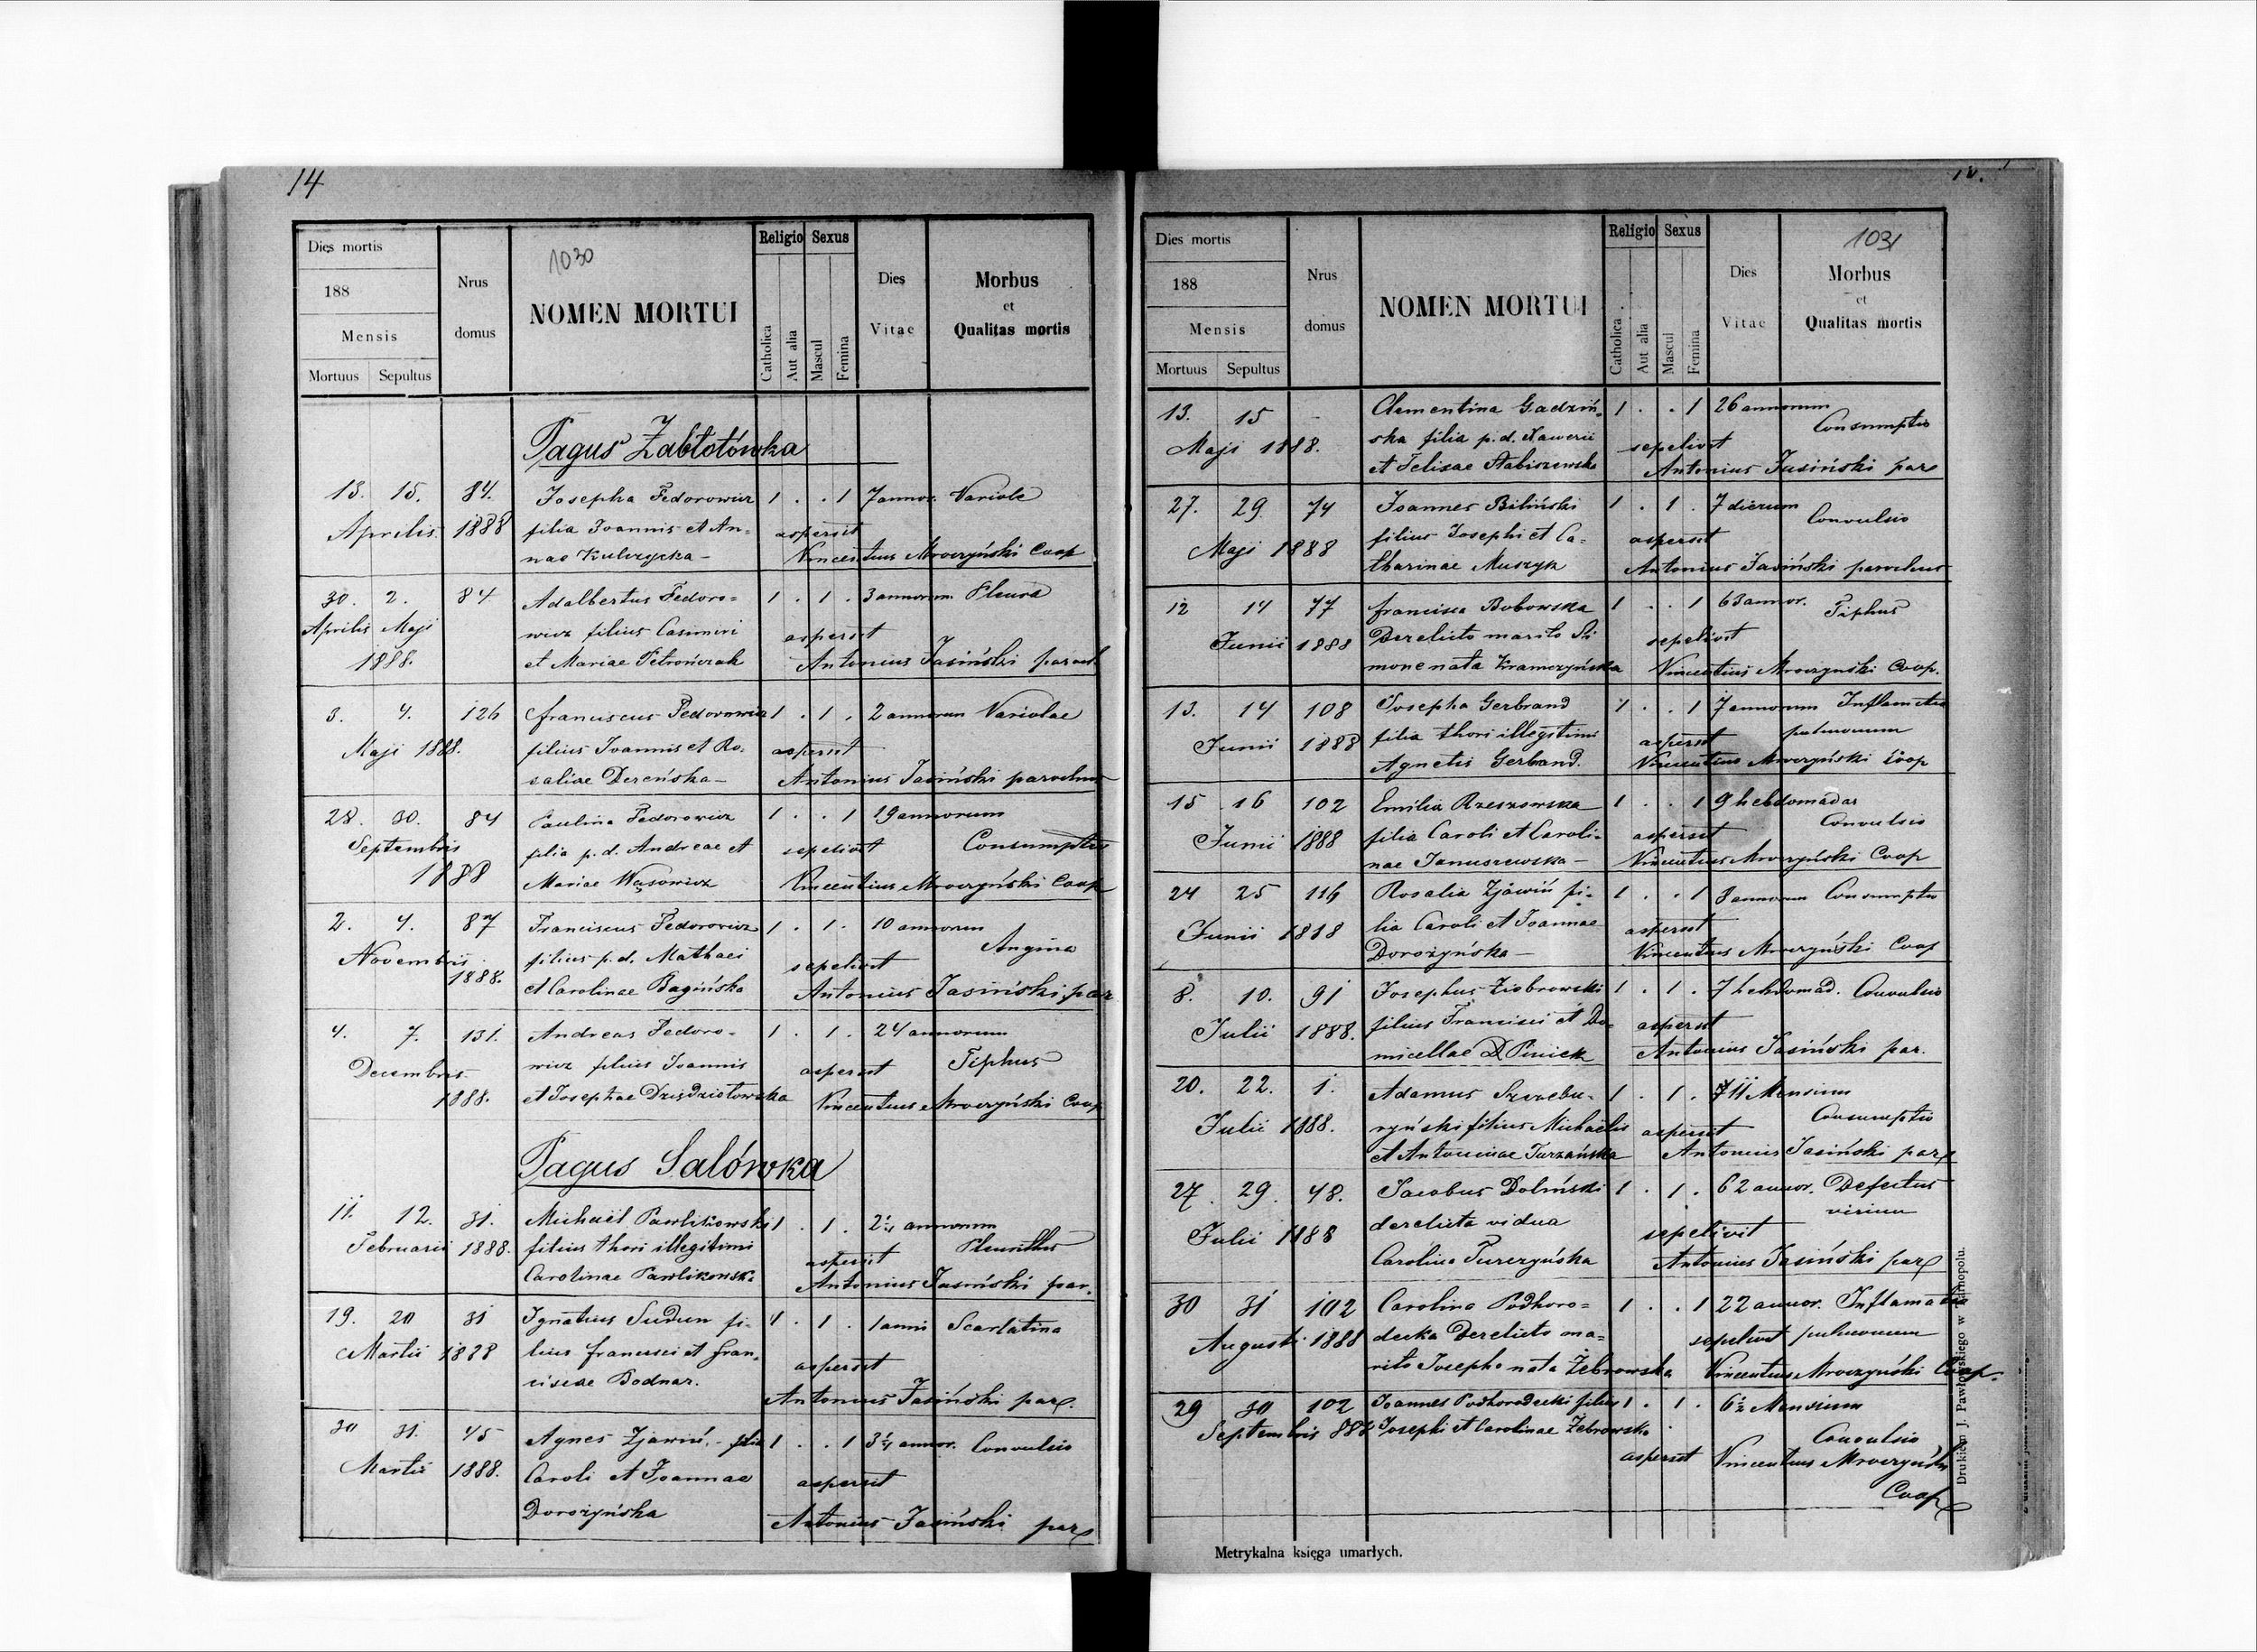 14
Dies mortis
188
Mensis
Mortuus Sepultus
Nrus
domus
1030
NOMEN MORTUI
Religio Sexus
Catholica
Aut alia
Mascul
Femina
Dies
Vitae
Morbus
et
Qualitas mortis
Pagus Zabłotówka
13. 15. 84. Josepha Fedorowicz 1 . . 1 7 annor. Variole
Aprilis 1888 filia Joannis et An-
nae Kulczycka - aspersit
Vincentius Mroczyński Coop
30. 2. 84 Adalbertus Fedoro= 1 . 1 . 3 annorum Pleura
Aprilis Maji wicz filius Casimiri aspersit
1888. et Mariae Petrończak Antonius Jasiński paroch.
3. 4. 126 Franciscus Fedorowicz 1 . 1 . 2 annorum Variolae
Maji 1888. filius Joannis et Ro- aspersit
saliae Dereńska - Antonius Jasiński parochus
28. 30. 84 Paulina Fedorowicz 1 . . 1 19 annorum
Septembris filia p.d. Andreae et sepelivit Consumptio
1888 Mariae Wąsowicz Vincentius Mroczyński Coop
2. 4. 87 Franciscus Fedorowicz 1 . 1 . 10 annorum
Novembris filius p.d. Mathaei sepelivit Angina
1888. et Carolinae Bagińska Antonius Jasiński par
4. 7. 131. Andreas Fedoro- 1 . 1 . 24 annorum
Decembris wicz filius Joannis aspersit Tiphus
1888. et Josephae Dziędziołowska Vincentius Mroczyński Coop
Pagus Salówka
11. 12. 31. Michaël Pawlikowski 1 . 1 . 2¼ annorum
Februarii 1888. filius thori illegitimi aspersit
Carolinae Pawlikowska Antonius Jasiński par.
19. 20 31 Ignatius Sudun fi- 1 . 1 . 1 anni Scarlatina
Martii 1888 lius Francisci et Fran- aspersit
ciscae Bodnar. Antonius Jasiński par.
30 31. 45 Agnes Zjawiń - filia 1 . . 1 3¼ annor. Convulsio
Martii 1888. Caroli et Joannae aspersit
Dorożyńska Antonius Jasiński par
Dies mortis
188
Mensis
Mortuus Sepultus
Nrus
domus
NOMEN MORTUI
Religio Sexus
Catholica
Aut alia
Mascul
Femina
Dies
Vitae
1031
Morbus
et
Qualitas mortis
13. 15 - Clementina Gadziń- 1 . . 1 26 annorum
Maji 1888. ska filia p.d. Xawerii sepelivit Consumptio
et Felisae Antonius Jasiński par
27. 29 74 Joannes Biliński 1 . 1 . 7 dierum
Maji 1888 filius Josephi et Ca- aspersit Convulsio
tharinae Muszyk Antonius Jasiński parochus
12 14 77 Francisca Bobowska 1 . . 1 63 annor. Tiphus
Junii 1888 Derelicto marito Si sepelivit
mone nata Kramczyńska Vincentius Mroczyński Coop.
13. 14 108 Josepha Gerbrand 1 . . 1 7 annorum Inflamatio
Junii 1888 filia thori illegitimi aspersit pulmonum
Agnetis Gerbrand. Vincentius Mroczyński Coop
15 16 102 Emilia Rzeszowska 1 . . 1 9 hebdomadar
Junii 1888 filia Caroli et Caroli- aspersit Convulsio
nae Januszewska - Vincentius Mroczyński Coop
24 25 116 Rosalia Zjawiń fi- 1 . . 1 8 annorum Consumptio
Junii 1888 lia Caroli et Joannae aspersit
Dorożyńska - Vincentius Mroczyński Coop
8. 10. 91 Josephus Ziobrowski 1 . 1 . 7 hebdomad. Convulsio
Julii 1888. filius Francisci et Do- aspersit
micellae D. Piniek Antonius Jasiński par.
20. 22. 1. Adamus Szczebu- 1 . 1 . 11 Mensium
Julii 1888. ryński filius Michaelis aspersit Consumptio
et Antoninae Turzańska Antonius Jasiński par
27. 29. 48. Jacobus Doliński 1 . 1 . 62 annor. Defectus
Julii 1888 derelicta vidua sepelivit virium
Carolina Turczyńska Antonius Jasiński par
30 31 102 Carolina Podhoro= 1 . . 1 22 annor. Inflamatio
Augusti 1888 decka Derelicto ma= sepelivit pulmonum
rito Josepho nata Żebrowska Vincentius Mroczyński Coop.
29 30 102 Joannes Podhorodecki filius 1 . 1 . 6½ Mensium
Septembris 888 Josephi et Carolinae Żebrowska Convulsio
aspersit Vincentius Mroczyński
Coop
Metrykalna księga umarłych.
Drukiem J. Pawłowskiego w Tarnopolu.